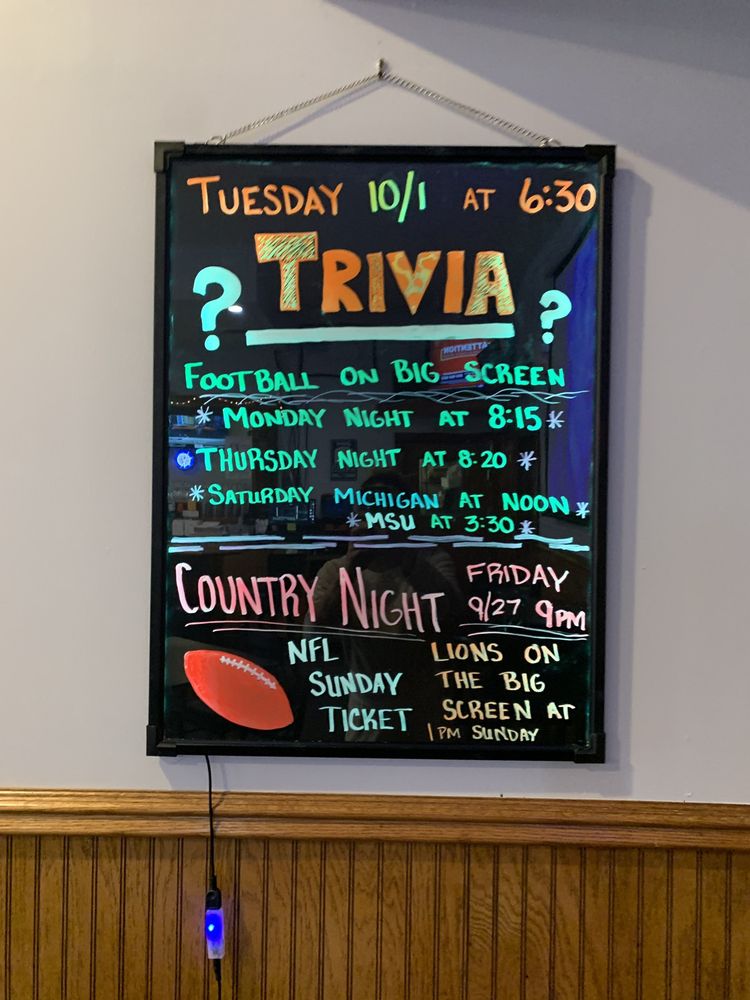 TUESDAY 10/1 AT 6:30
TRIVIA
? ?
FOOTBALL ON BIG SCREEN
* MONDAY NIGHT AT 8:15 *
THURSDAY NIGHT AT 8:20 *
* SATURDAY MICHIGAN AT NOON *
* MSU AT 3:30 *
COUNTRY NIGHT
FRIDAY
9/27 9PM
NFL
SUNDAY
TICKET
LIONS ON
THE BIG
SCREEN AT
1PM SUNDAY
ATTENTION